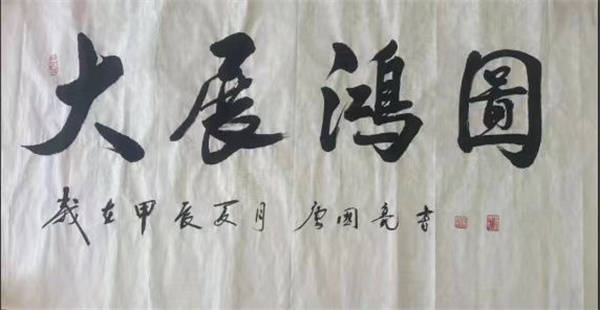 大展鸿圖
歲在甲辰夏月 唐國亮書